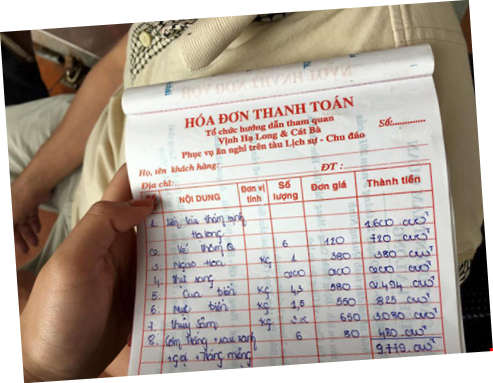 HÓA ĐƠN THANH TOÁN
Tổ chức hướng dẫn tham quan
Vịnh Hạ Long & Cát Bà
Phục vụ ăn nghỉ trên tàu Lịch sự - Chu đáo
Số:.............
Họ, tên khách hàng:
Địa chỉ: ĐT :
NỘI DUNG Đơn vị tính Số lượng Đơn giá Thành tiền
1. thăm vịnh
Hạ long 1.600.000đ
2. Vé thăm Q 6 120 720.000đ
3. Ngao hoa kg 1 380 380.000đ
4. 200.000đ
5. Cua biển kg 4,3 580 2.494.000đ
6. Mực biển kg 1,5 550 825.000đ
7. thủy sâm kg 650 3.080.000đ
8. Cơm trắng + rau xanh 6 80 480.000đ
9.779.000đ